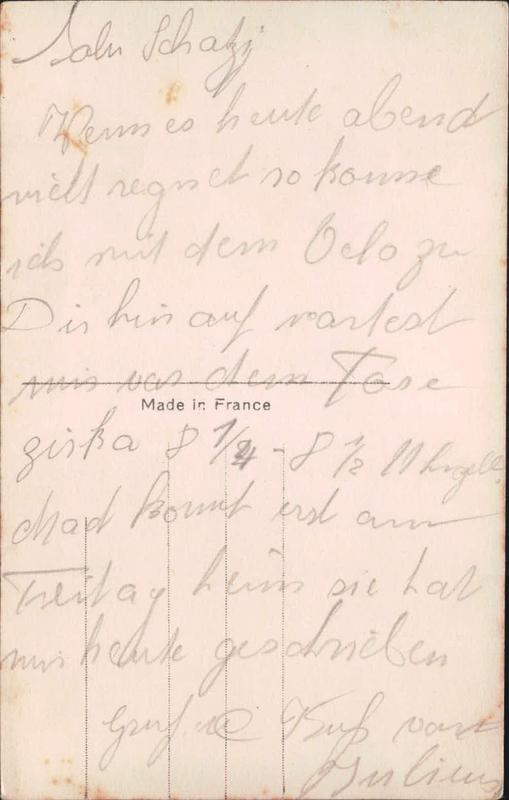 Schatzi
Wenn es heute abend
nicht regnet so komme
ich mit dem Velo zu
Dir hinauf wartest
mir vor dem Tore
Made in France
zirka 8 1/4 - 8 1/2 Uhr
Mad kommt erst am
Freitag heim sie hat
mir heute geschrieben
Gruß u Kuß von
Julius